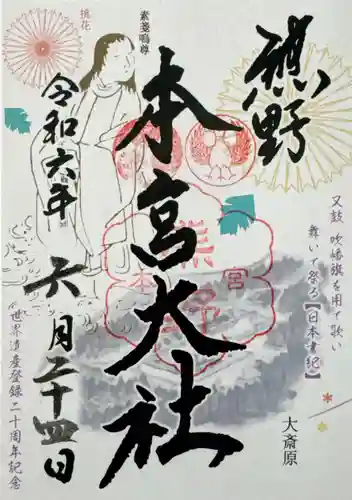 熊野
又鼓 吹幡旗を用て歌い
舞いて祭る【日本書紀】
大斎原
本宮大社
素戔嗚尊
桃花
令和六年
六月二十四日
世界遺産登録二十周年記念